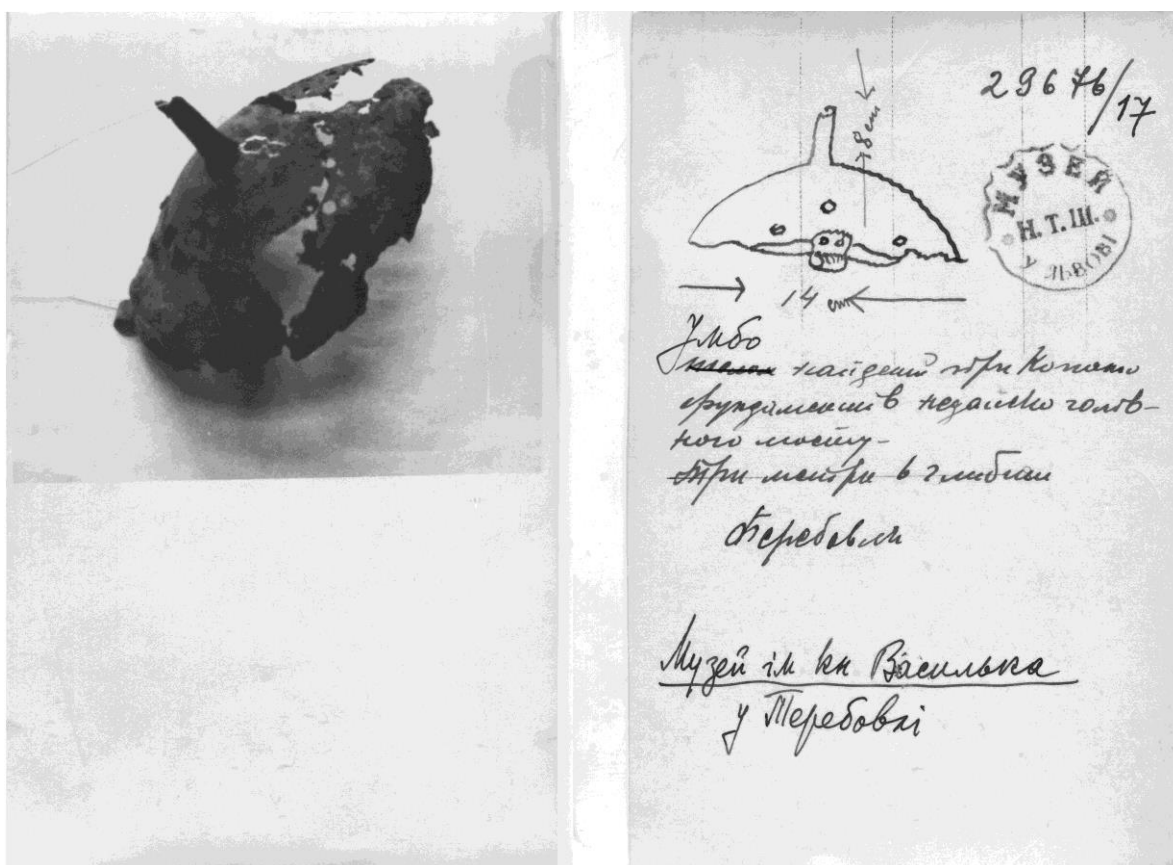 29676/17
8 cm
МУЗЕЙ
Н.Т.Ш.
У ЛЬВОВІ
14 cm
Умбо
найдений при Копаню
фундаментів недалеко голов-
ного мосту-
Три метри в глибині
Теребовля
Музей ім кн Василька
у Теребовлі